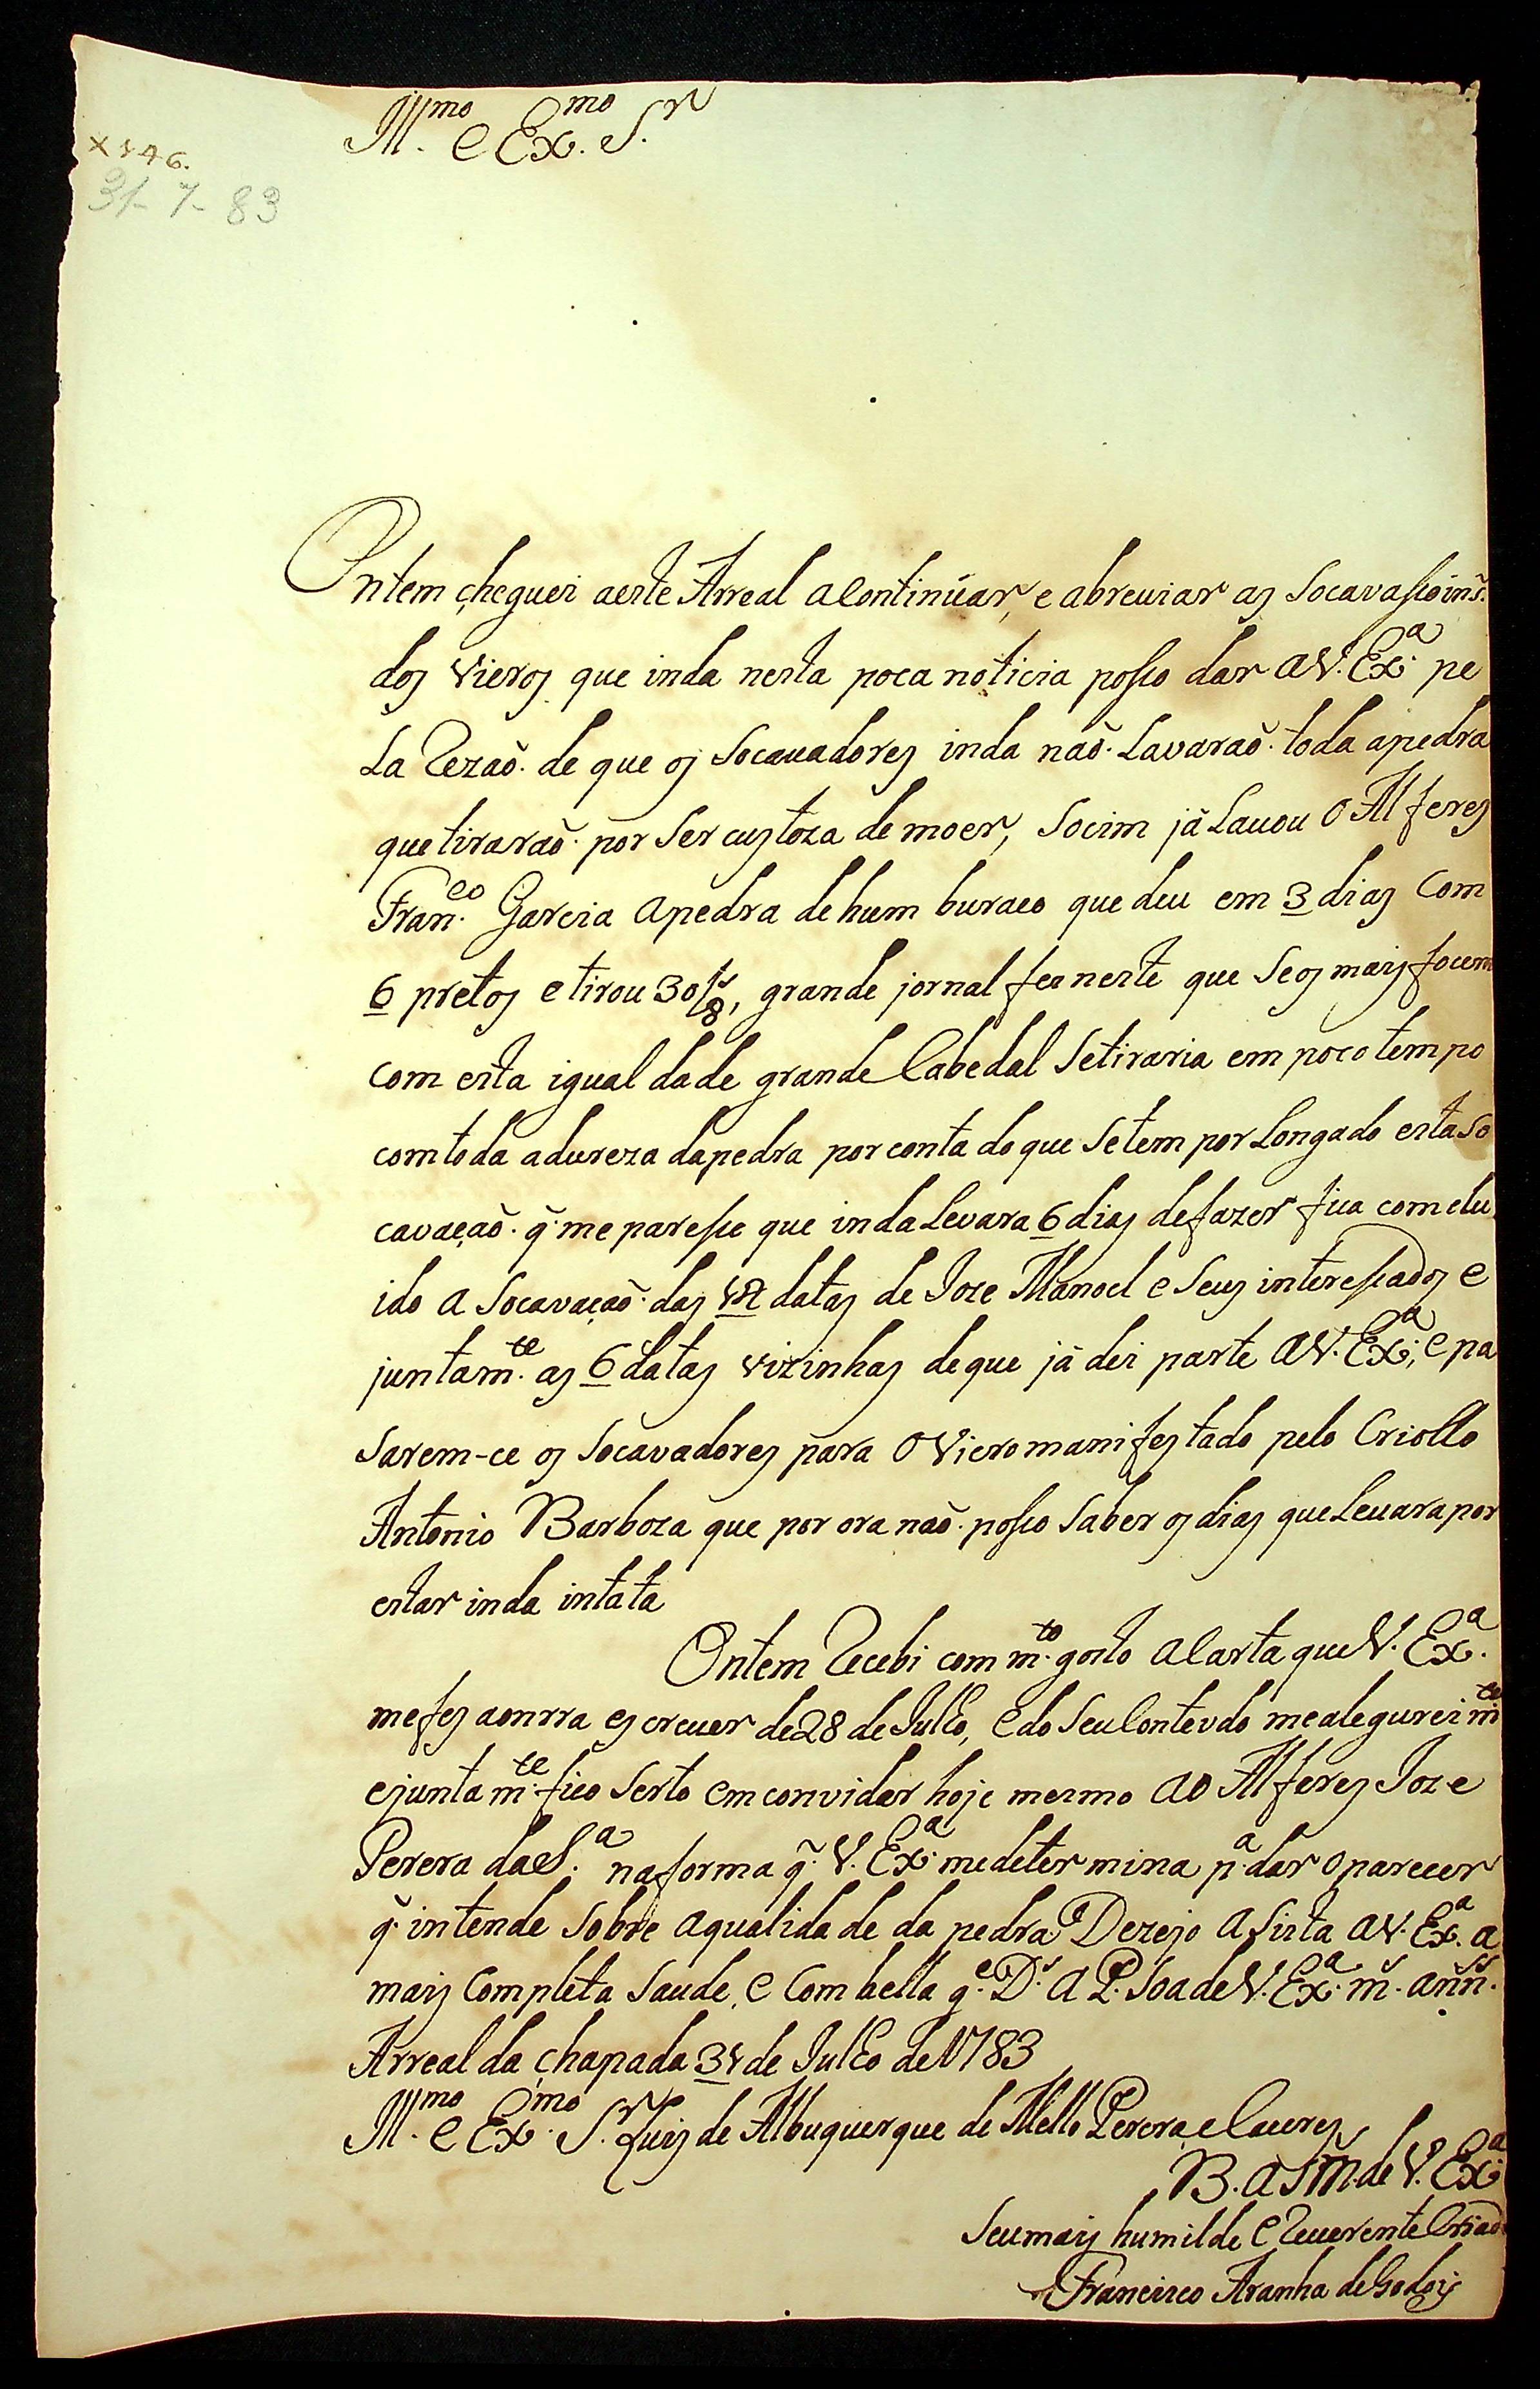 Ill.mo e Ex.mo S.r
X146.
31-7-83
Ontem cheguei aeste Arreal aContinúar, e abreuiar as Socavasoins.
dos Vieros que inda nesta poca noticia posso dar a V. Ex.a pe
La Rezaõ de que os Socauadores inda naõ Lavaraõ toda apedra
que tiraraõ por Ser custoza de moer, Socim já Lauou o Alferes
Fran.co Garcia apedra dehum buraco que deu em 3 dias Com
6 pretos e tirou 30/8.s, grande jornal fes neste que Seos mais focem
Com esta igualdade grande Cabedal Setiraria em poco tempo
com toda adureza dapedra por conta do que Setem porLongado esta So
cavaçaõ q̃ me paresse que inda Levara 6 dias defazer fica comclu
ido a Socavaçaõ das 12 datas de Joze Manoel e Seus interessados e
juntam.te as 6 datas vizinhas deque já dei parte a V. Ex.a; e pa
Sarem-ce os Socavadores para o Viero manifestado pelo Criollo
Antonio Barboza que por ora naõ posso Saber os dias que Leuara por
estar inda intata
Ontem Recebi com m.to gosto aCarta que V. Ex.a
mefes aonrra escreuer de 28 de Julho, e do Seu Contevdo mealegurei m.to
ejuntam.te fico Serto em convidar hoje mesmo ao Alferes Joze
Perera da S.a na forma q̃ V. Ex.a medetermina p.a dar o parecer
q̃ intende Sobre aqualidade da pedra Dezejo aSista a V. Ex.a a
mais Completa Saude, e Com hella g.e D.s a P. Soa de V. Ex.a m.s ann.s
Arreal da chapada 31 de Julho de 1783
Ill.mo e Ex.mo S.r Luis de Albuquerque de Mello Perera e Caceres
B. as M. de V. Ex.a
Seu mais humilde e Reuerente Criado
Francisco Aranha de Godois